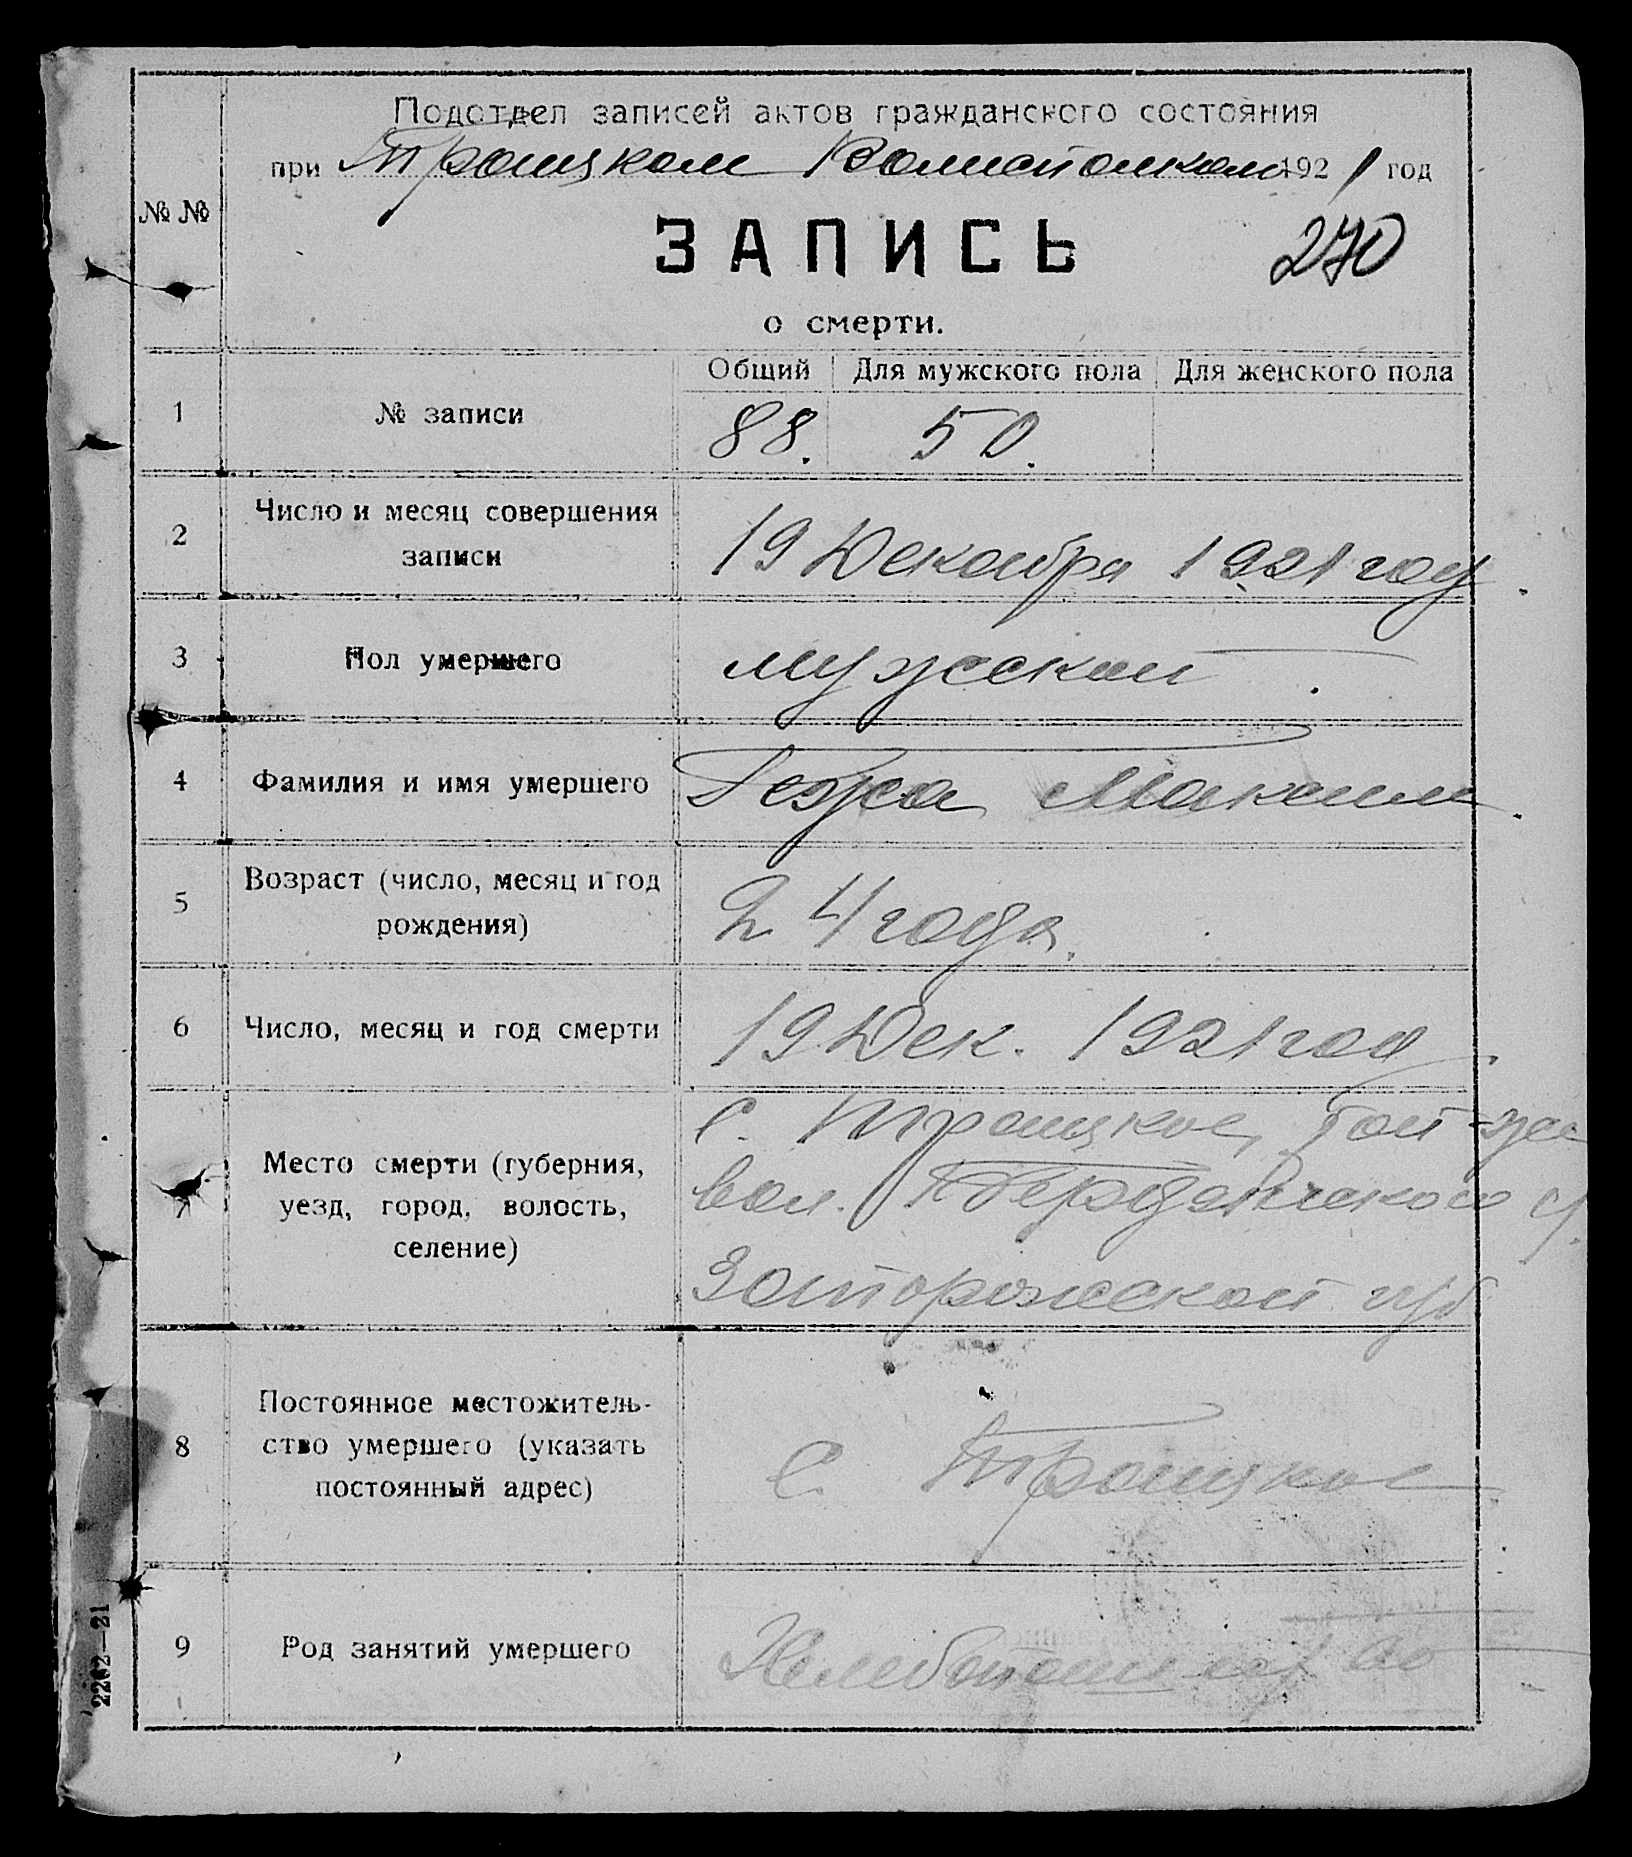 Подотдел записей актов гражданского состояния
при Троицком Волисполкоме 1921 год
№ №
ЗАПИСЬ
270
о смерти.
Общий Для мужского пола Для женского пола
1 № записи 88. 50.
2 Число и месяц совершения
записи 19 Декабря 1921 году
3 Пол умершего мужской
4 Фамилия и имя умершего Максим
5 Возраст (число, месяц и год
рождения) 24 года.
6 Число, месяц и год смерти 19 Дек. 1921 год
7 Место смерти (губерния,
уезд, город, волость,
селение)
С. Троицкое, той-же
вол. Бердянского у.
Запорожской губ
8 Постоянное местожитель-
ство умершего (указать
постоянный адрес)
С. Троицкое
9 Род занятий умершего Хлебопашество
2262—21